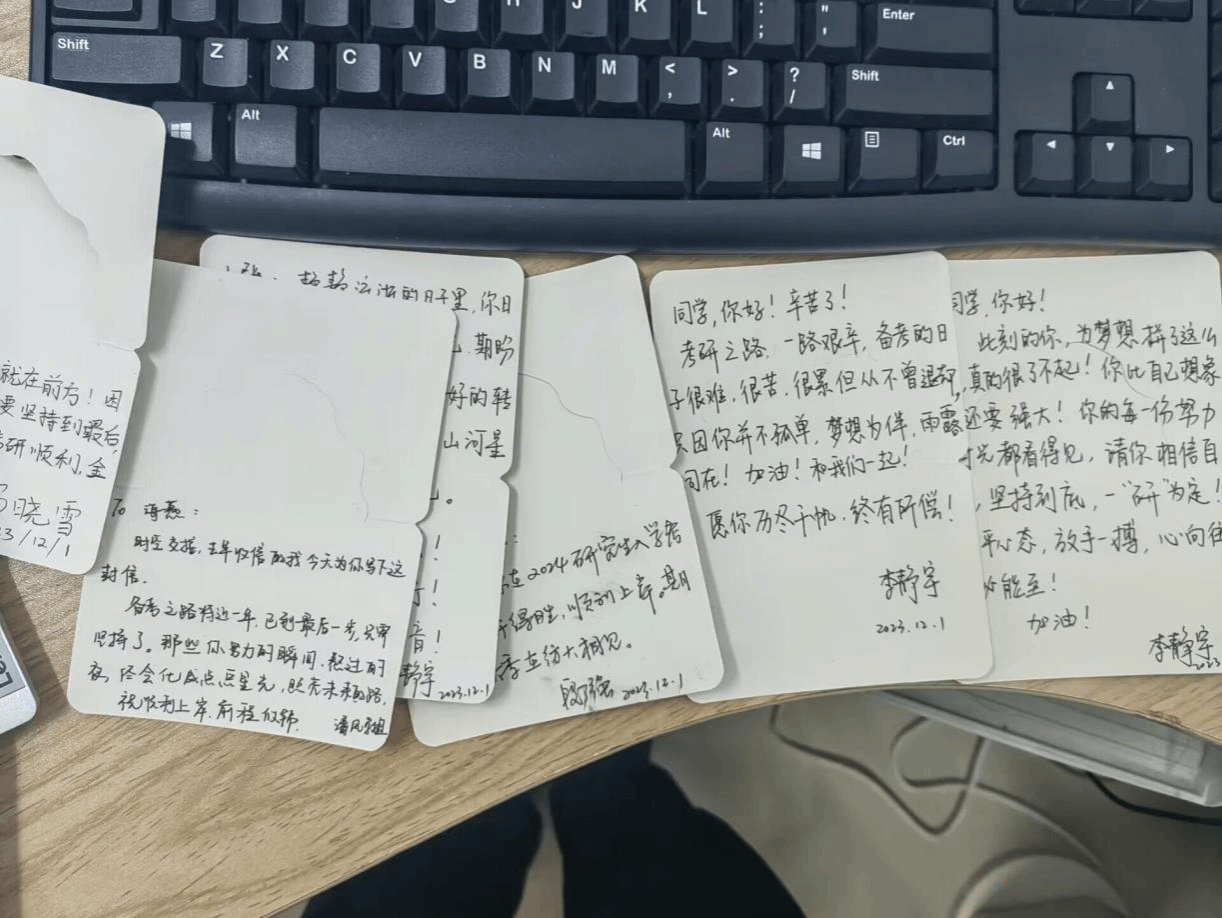 H
J
K
L
:
;
"
'
Enter
Shift
Z
X
C
V
B
N
M
<
,
>
.
?
/
Shift
Alt
Alt
Ctrl
就在前方！因
要坚持到最后
研顺利，金
晓雪
3/12/1
To 海燕：
时空交替，去年收信的我今天为你写下这
封信．
备考之路将近一年，已到最后一步，只需
坚持了。那些你努力的瞬间，熬过的
夜，终会化成点点星光，照亮未来的路．
祝顺利上岸，前程似锦．
清风学姐
的日子里，你日
期盼
好的转
山河星
。
！
！
音！
静宇
2023.12.1
在2024研究生入学考
得胜，顺利上岸。期
季在纺大相见。
2023.12.1
同学，你好！辛苦了！
考研之路，一路艰辛，备考的日
子很难，很苦，很累但从不曾退却，
只因你并不孤单，梦想为伴，雨露
同在！加油！和我们一起！
愿你历尽千帆，终有所偿！
李静宇
2023.12.1
同学，你好！
此刻的你，为梦想拼了这么
真的很了不起！你比自己想象
还要强大！你的每一份努力
时光都看得见，请你相信自
，坚持到底，一“研”为定！
平心态，放手一搏，心向往
必能至！
加油！
李静宇
2023